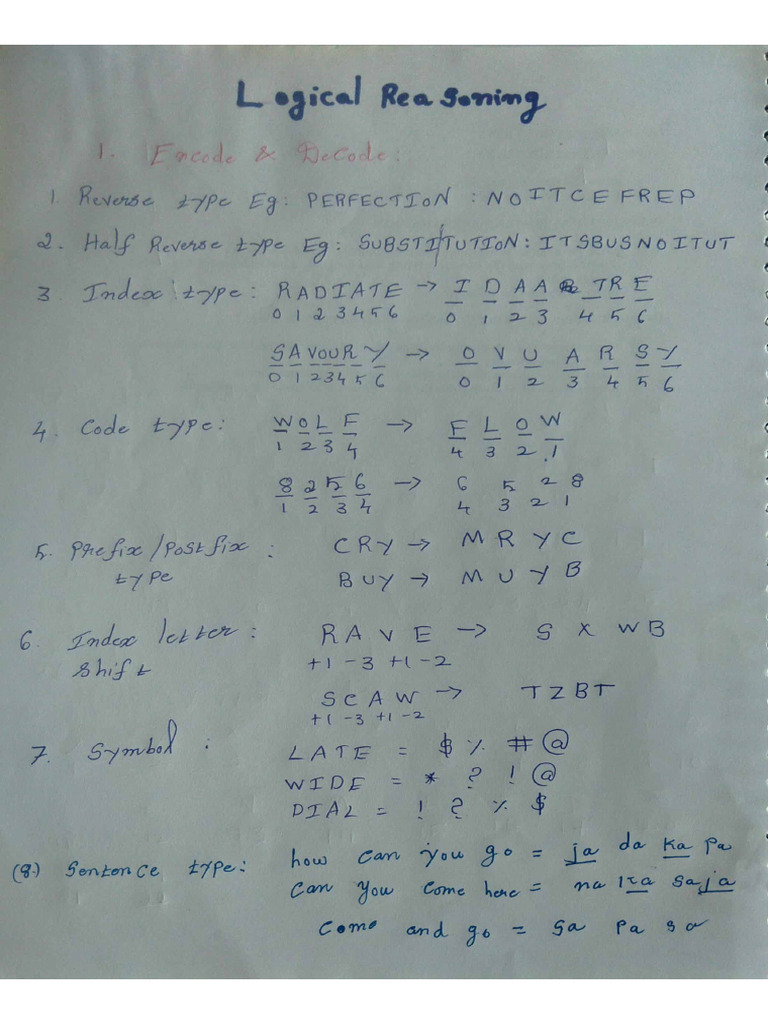 Logical Reasoning
1. Encode & Decode:
1. Reverse type Eg: PERFECTION : NOITCEFREP
2. Half Reverse type Eg: SUBSTITUTION: ITSBUSNOITUT
3. Index type: RADIATE → I D A A TR E
0 1 2 3 4 5 6 0 1 2 3 4 5 6
SAVOURY → O V U A R S Y
0 1 2 3 4 5 6 0 1 2 3 4 5 6
4. Code type: WOLF → F L O W
1 2 3 4 4 3 2 1
8 2 5 6 → 6 5 2 8
1 2 3 4 4 3 2 1
5. Prefix/Postfix : CRY → M R Y C
type BUY → M U Y B
6. Index letter : RAVE → S X W B
shift +1 -3 +1 -2
SCAW → TZBT
+1 -3 +1 -2
7. Symbol : LATE = $ % # @
WIDE = * ? ! @
DIAL = ! ? % $
(8.) Sentence type: how can you go = ja da ka pa
can you come here = na ka sa ja
come and go = sa pa sa